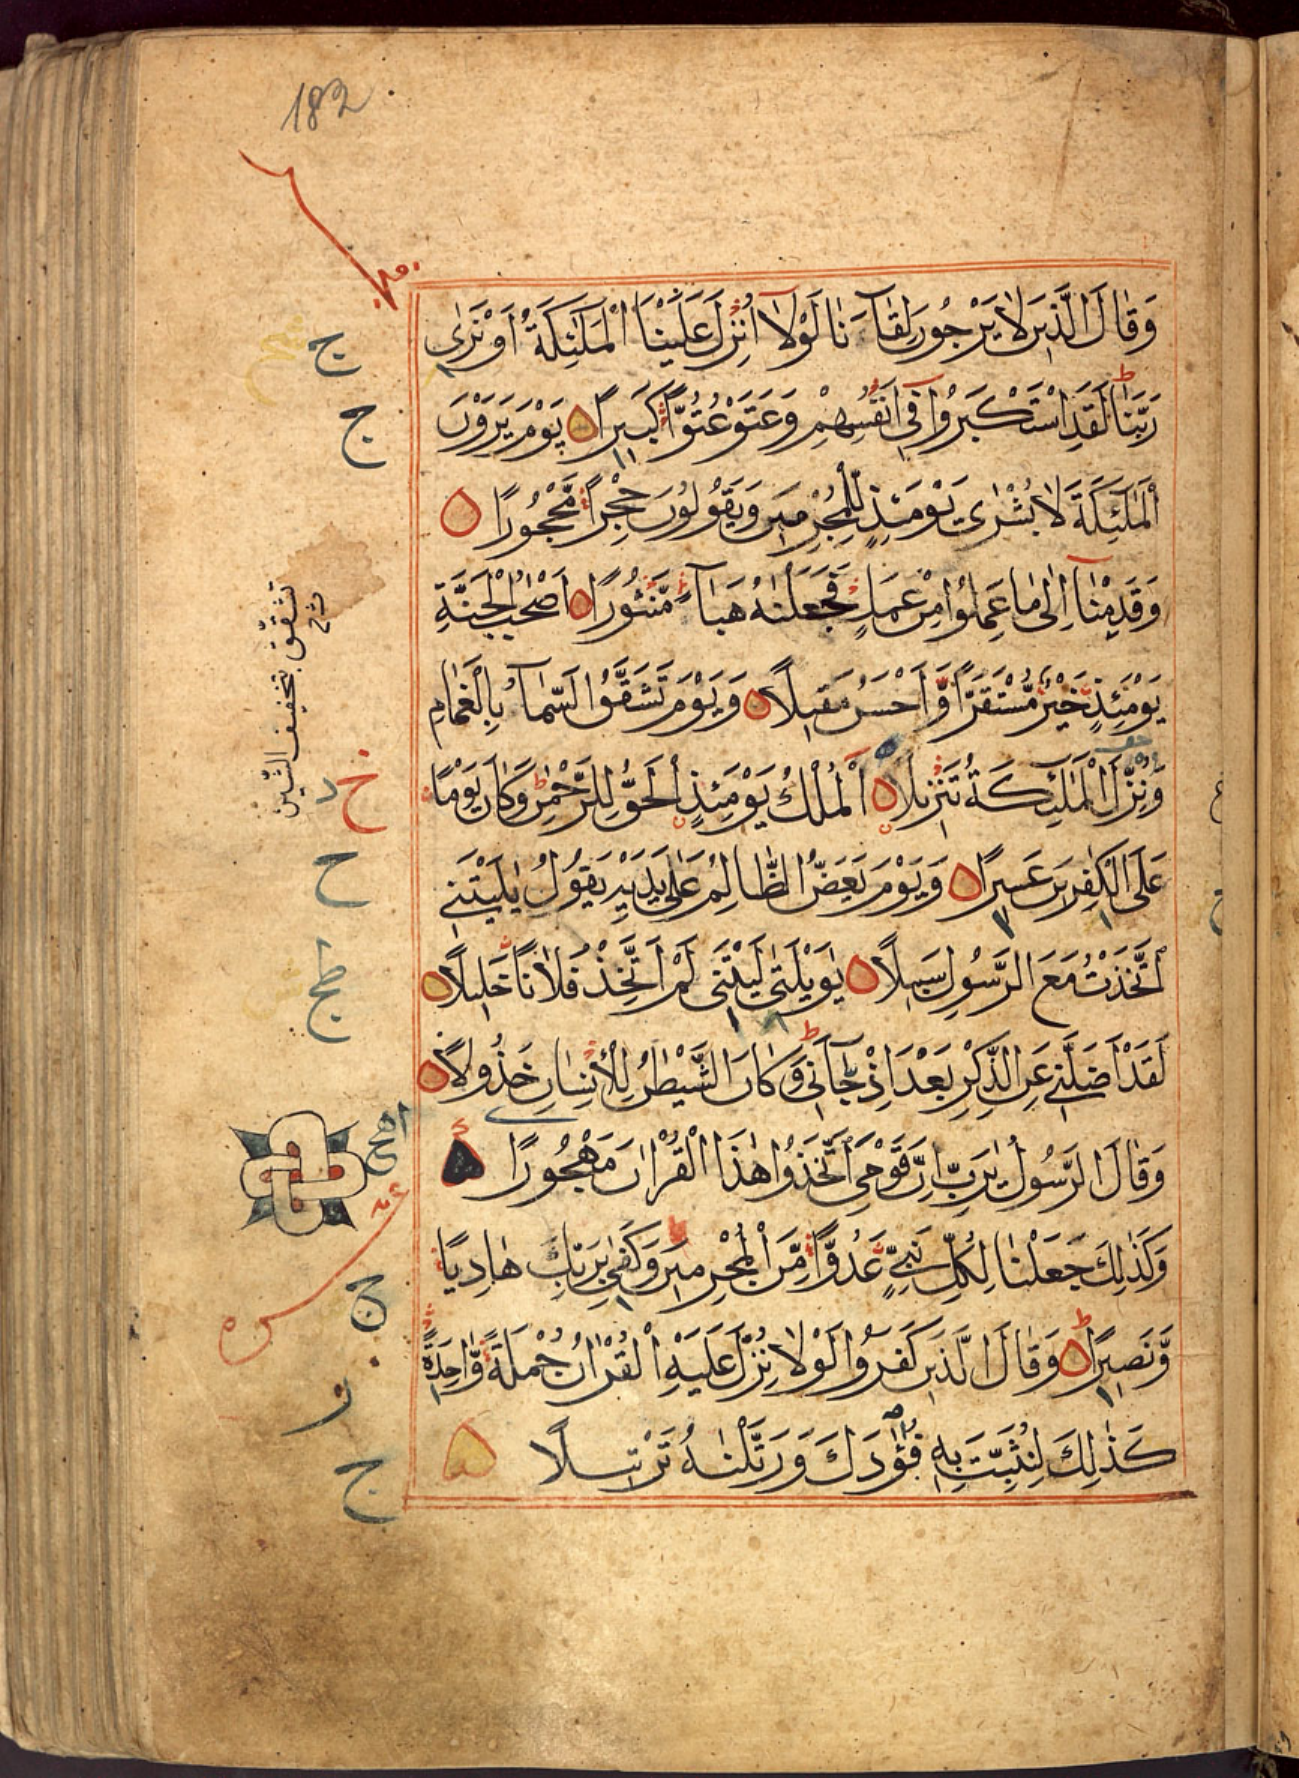 182
وَقَالَ الَّذِينَ لَا يَرْجُونَ لِقَآءَنَا لَوْلَآ اُنْزِلَ عَلَيْنَا الْمَلٰٓئِكَةُ اَوْ نَرٰى
رَبَّنَا لَقَدِ اسْتَكْبَرُوْا فِىٓ اَنْفُسِهِمْ وَعَتَوْ عُتُوًّا كَبِيرًا يَوْمَ يَرَوْنَ
الْمَلٰٓئِكَةَ لَا بُشْرٰى يَوْمَئِذٍ لِلْمُجْرِمِينَ وَيَقُولُونَ حِجْرًا مَّحْجُورًا
وَقَدِمْنَآ اِلٰى مَا عَمِلُوْا مِنْ عَمَلٍ فَجَعَلْنٰهُ هَبَآءً مَّنْثُورًا اَصْحٰبُ الْجَنَّةِ
يَوْمَئِذٍ خَيْرٌ مُّسْتَقَرًّا وَّاَحْسَنُ مَقِيلًا وَيَوْمَ تَشَقَّقُ السَّمَآءُ بِالْغَمَامِ
وَنُزِّلَ الْمَلٰٓئِكَةُ تَنْزِيلًا اَلْمُلْكُ يَوْمَئِذٍ الْحَقُّ لِلرَّحْمٰنِ وَكَانَ يَوْمًا
عَلَى الْكٰفِرِينَ عَسِيرًا وَيَوْمَ يَعَضُّ الظَّالِمُ عَلٰى يَدَيْهِ يَقُولُ يٰلَيْتَنِى
اتَّخَذْتُ مَعَ الرَّسُولِ سَبِيلًا يٰوَيْلَتٰى لَيْتَنِى لَمْ اَتَّخِذْ فُلَانًا خَلِيلًا
لَقَدْ اَضَلَّنِى عَنِ الذِّكْرِ بَعْدَ اِذْ جَآءَنِى وَكَانَ الشَّيْطٰنُ لِلْاِنْسَانِ خَذُولًا
وَقَالَ الرَّسُولُ يٰرَبِّ اِنَّ قَوْمِى اتَّخَذُوْا هٰذَا الْقُرْاٰنَ مَهْجُورًا
وَكَذٰلِكَ جَعَلْنَا لِكُلِّ نَبِىٍّ عَدُوًّا مِّنَ الْمُجْرِمِينَ وَكَفٰى بِرَبِّكَ هَادِيًا
وَّنَصِيرًا وَقَالَ الَّذِينَ كَفَرُوْا لَوْلَا نُزِّلَ عَلَيْهِ الْقُرْاٰنُ جُمْلَةً وَّاحِدَةً
كَذٰلِكَ لِنُثَبِّتَ بِهِ فُؤَادَكَ وَرَتَّلْنٰهُ تَرْتِيلًا
تشقّق بتخفيف الشين